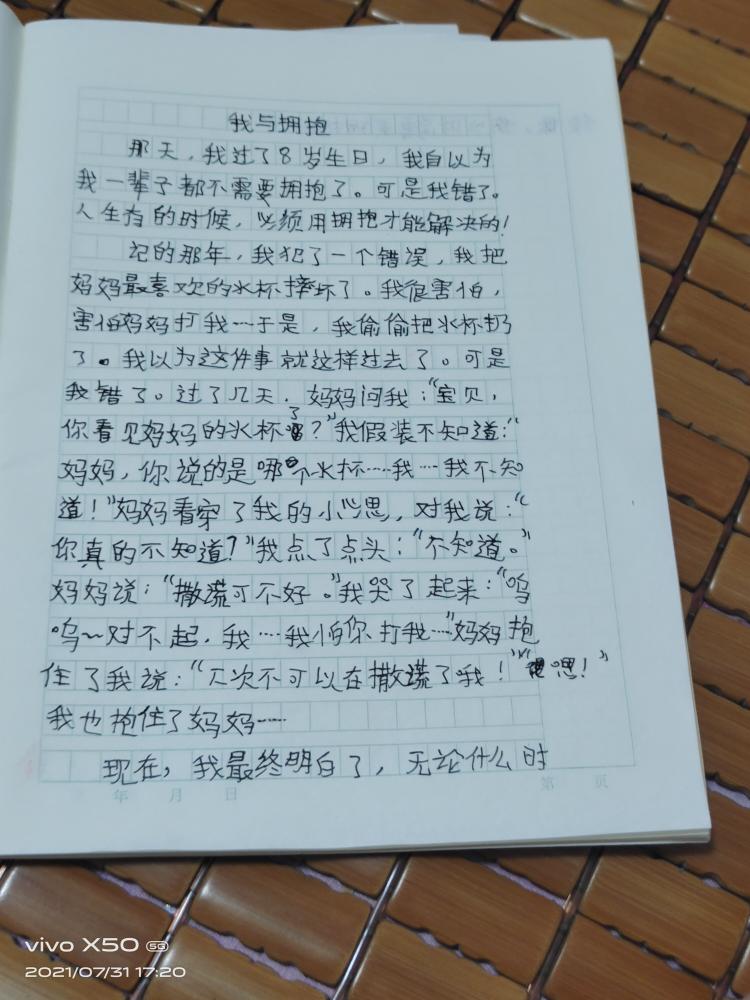 我与拥抱
那天，我过了8岁生日，我自以为
我一辈子都不需要拥抱了。可是我错了。
人生有的时候，必须用拥抱才能解决的！
记的那年，我犯了一个错误，我把
妈妈最喜欢的水杯摔坏了。我很害怕，
害怕妈妈打我…于是，我偷偷把水杯扔
了。我以为这件事就这样过去了。可是
我错了。过了几天，妈妈问我：“宝贝，
你看见妈妈的水杯了？”我假装不知道：“
妈妈，你说的是哪个水杯……我……我不知
道！”妈妈看穿了我的小心思，对我说：“
你真的不知道？”我点了点头：“不知道。”
妈妈说：“撒谎可不好。”我哭了起来：“呜
呜~对不起，我……我怕你打我……”妈妈抱
住了我说：“下次不可以在撒谎了哦！”“嗯！”
我也抱住了妈妈……
现在，我最终明白了，无论什么时
年 月 日
第 页
vivo X50 5G
2021/07/31 17:20